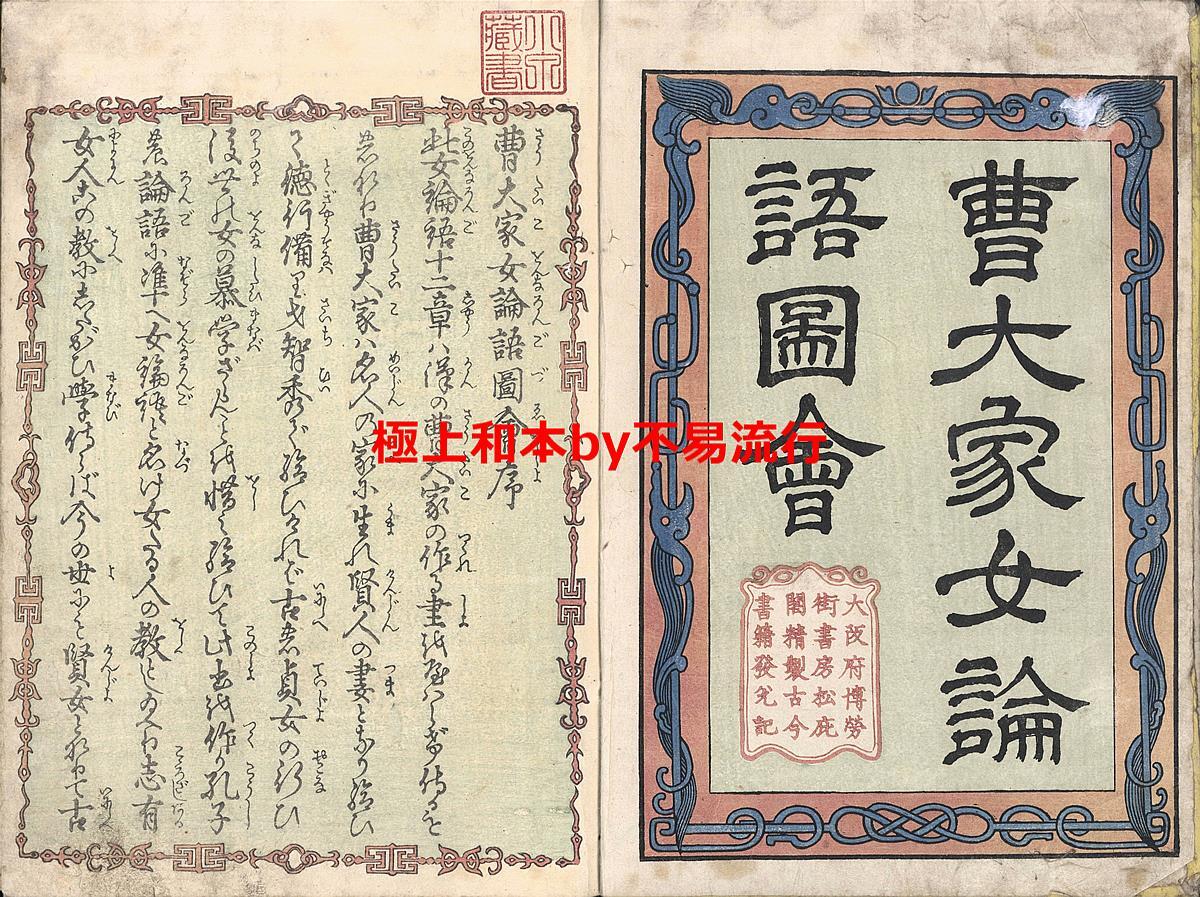 曹大家女論
語圖會
大阪府博勞
街書房松庇
閣精製古今
書籍發兌記
極上和本by不易流行
藏書
曹大家女論語圖會序
此女論語十二章ハ漢の曹大家の作る書
曹大家ハ名人の家に生れ賢人の妻となり給ひ
て徳行備り才智秀で給ひけれど古の貞女の行ひ
後世の女の慕学ざらんを惜く給ひて此書を作り孔子
の論語に准へ女論語と名け女たる人の教としの人も志有
女人この教にしたがひ学侍らば今の世にも賢女となりて古